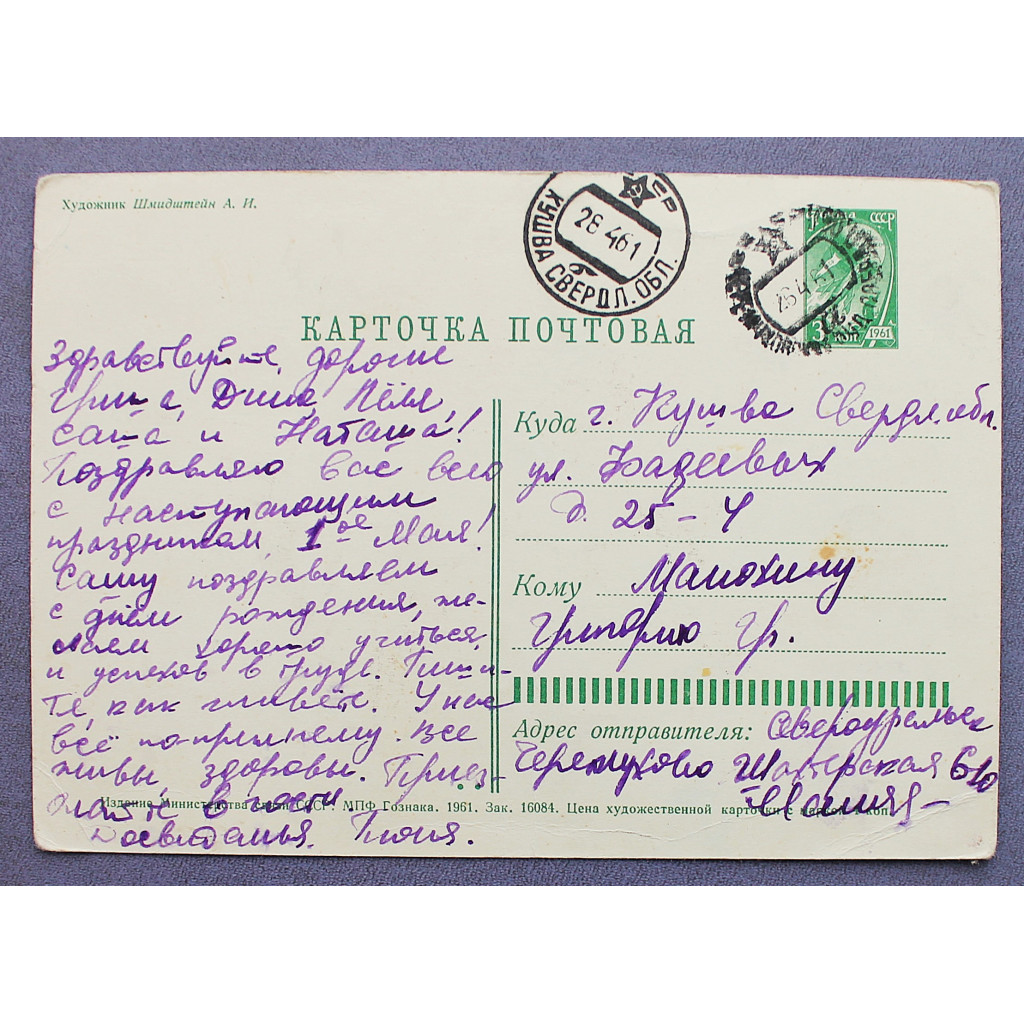 Художник Шмидштейн А. И.
КУШВА СВЕРДЛ. ОБЛ.
26 4 61
ПОЧТА СССР
3 КОП 1961
КАРТОЧКА ПОЧТОВАЯ
Здравствуйте, дорогие
Гриша, Дина, Лёля,
Саша и Наташа!
Поздравляю вас всех
с наступающим
праздником 1ое Мая!
Сашу поздравляем
с днём рождения, же-
лаем хорошо учиться
и успехов в труде. Пиши-
те, как живёте. У нас
всё по-прежнему. Все
живы здоровы. Приез-
жайте в гости.
Досвиданья. Тоня.
Куда г. Кушва Свердл. обл.
ул. Фадеевых
д. 25-4
Кому Манохину
Григорию Гр.
Адрес отправителя: Североуральск
Черемухово Шахтерская 6
Издание Министерства связи СССР. МПФ Гознака. 1961. Зак. 16084. Цена художественной карточки с маркой 4 коп.